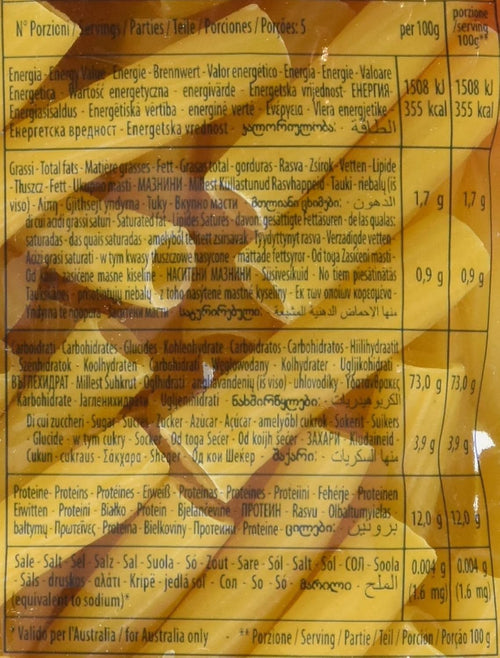 N° Porzioni / Servings / Parties / Teile / Porciones / Porções: 5
per 100g
porzione
/serving
100g**
Energia - Energy Value - Energie - Brennwert - Valor energético - Energia - Energie - Valoare
Energetica - Wartość energetyczna - energivärde - Energetska vrijednost - ЕНЕРГИЯ-
Energiasisaldus - Enerģētiskā vērtība - energinė vertė - Ενέργεια - Vlera energjetike -
Енергетска вредност - Energetska vrednost - კალორიულობა: - الطاقة
1508 kJ
355 kcal
1508 kJ
355 kcal
Grassi - Total fats - Matière grasses - Fett - Grasas total - gorduras - Rasva - Zsírok - Vetten - Lipide
- Tłuszcz - Fett - Ukupno masti - МАЗНИНИ - Millest Küllastunud Rasvhapped - Tauki - riebalų (iš
viso) - Λίπη - Gjithsejt yndyrna - Tuky - Вкупно масти - მთლიანი ცხიმები: - الدهون
1,7 g
1,7 g
di cui acidi grassi saturi - Saturated fat - Lipides Saturés - davon: gesättigte fettäsuren - de las qualas:
saturadas - das quais saturadas - amelyből telített zsírsavak - Tyydyttynyt rasva - Verzadigde vetten -
Acizi grasi saturati - w tym kwasy tłuszczowe nasycone - mättade fettsyror - Od toga Zasićeni masti -
Od kojih zasićene masne kiseline - НАСИТЕНИ МАЗНИНИ - Susivesikuid - No tiem piesātinātās
Taukskābes - prisotintųjų riebalų - z toho nasýtené mastné kyseliny - Εκ των οποίων κορεσμένα -
Yndyrna te ngopura - Заситени масти - სატურირებული: - منها الاحماض الدهنية المشبعة
0,9 g
0,9 g
Carboidrati - Carbohydrates - Glucides - Kohlenhydrate - Carboidratos - Carbohidratos - Hiilihydraatit
- Szénhidrátok - Koolhydraten - Carbohidrati - Węglowodany - Kolhydrater - Ugljikohidrati
ВЪГЛЕХИДРАТ - Millest Suhkrut - Ogļhidrāti - angliavandenių (iš viso) - uhlovodíky - Υδατάνθρακες
Karbohidrate - Јагленихидрати - Ugljenihidrati - ნახშირწყლები: - الكربوهيدريات
73,0 g
73,0 g
Di cui zuccheri - Sugar - Sucre - Zucker - Azúcar - Açúcar - amelyből cukrok - Sokerit - Suikers
- Glucide - w tym cukry - Socker - Od toga Šećer - Od kojih šećer - ЗАХАРИ - Kiudaineid -
Cukuri - cukraus - Σακχαρα - Sheqer - Од кои Шекер - შაქარი: - منها السكريات
3,9 g
3,9 g
Proteine - Proteins - Protéines - Eiweiß - Proteínas - Proteines - Proteiini - Fehérje - Proteinen
Eiwitten - Proteini - Białko - Protein - Bjelančevine - ПРОТЕИН - Rasvu - Olbaltumvielas
baltymų - Πρωτεΐνες - Proteina - Bielkoviny - Протеини - Proteine - ცილები: - بروتين
12,0 g
12,0 g
Sale - Salt - Sel - Salz - Sal - Suola - Só - Zout - Sare - Sól - Salt - Sól - СОЛ - Soola
- Sāls - druskos - αλάτι - Kripë - jedlá soľ - Сол - So - Só - მარილი - الملح
(equivalent to sodium)*
0.004 g
(1.6 mg)
0.004 g
(1.6 mg)
* Valido per l'Australia / for Australia only - ** Porzione / Serving / Partie / Teil / Porción / Porção 100 g